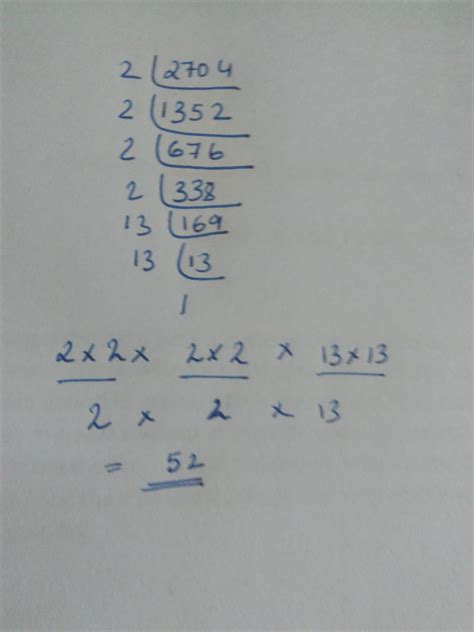 2 2704
2 1352
2 676
2 338
13 169
13 13
1
2 × 2 × 2 × 2 × 13 × 13
2 × 2 × 13
= 52